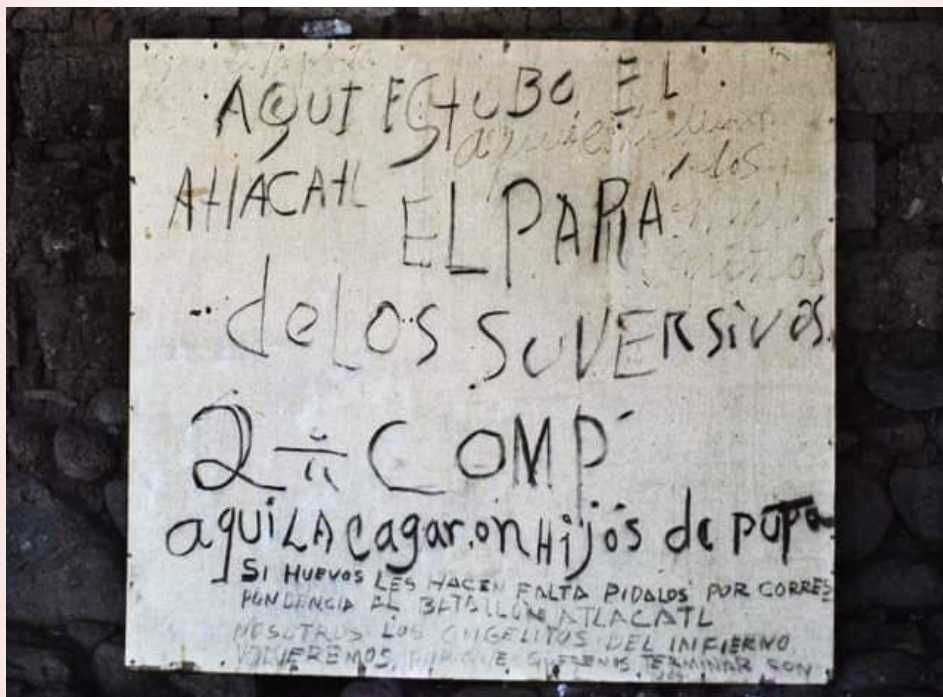 AQUI EStUBO EL
AtlACAtl
EL PAPIA
deLOS SUVERSivos
2 COMP
aquiLA cagaron Hijos de puta
SI HUEVOS LES HACEN FALTA PIDALOS POR CORRES
PONDENCIA AL BATALLON ATLACATL
NOSOTROS LOS ANGELITOS DEL INFIERNO
VOLVEREMOS, PORQUE QUEREMOS TERMINAR